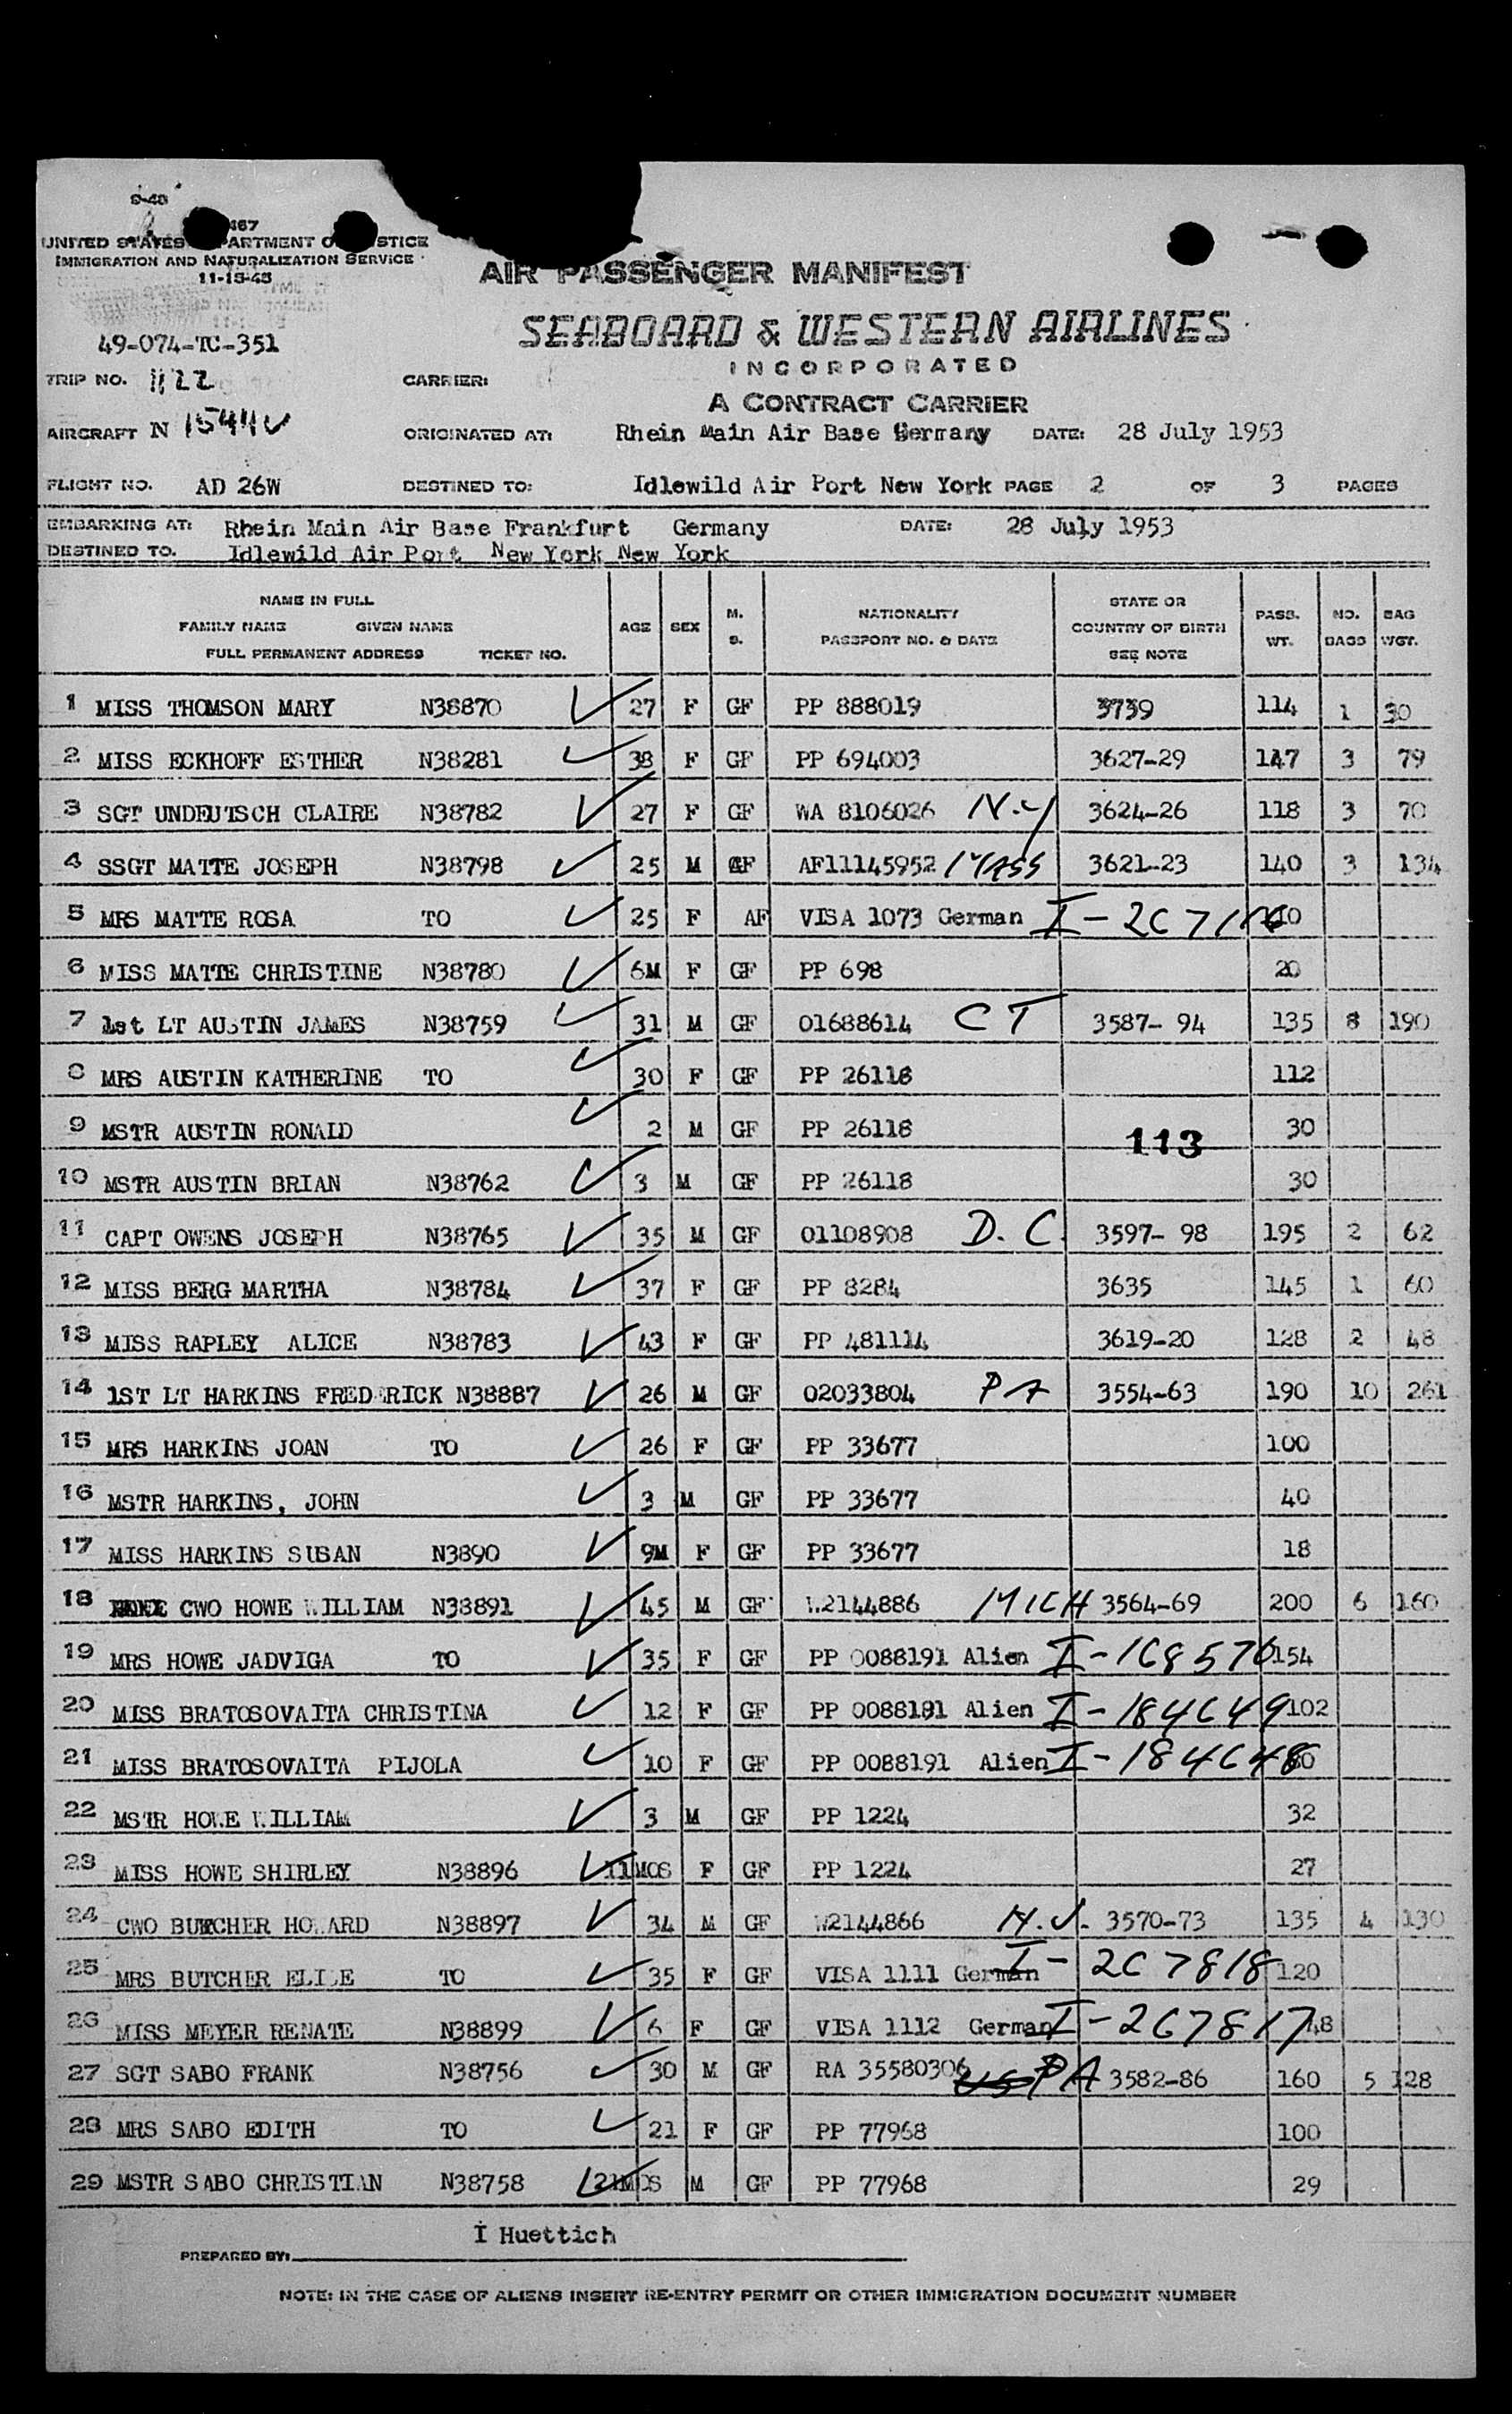 9-48
467
UNITED STATES PARTMENT O STICE
IMMIGRATION AND NATURALIZATION SERVICE
11-15-45
AIR PASSENGER MANIFEST
SEABOARD & WESTERN AIRLINES
INCORPORATED
A CONTRACT CARRIER
49-074-TC-351
TRIP NO. 1122 CARRIER:
AIRCRAFT N 1544V ORIGINATED AT: Rhein Main Air Base Germany DATE: 28 July 1953
FLIGHT NO. AD 26W DESTINED TO: Idlewild Air Port New York PAGE 2 OF 3 PAGES
EMBARKING AT: Rhein Main Air Base Frankfurt Germany DATE: 28 July 1953
DESTINED TO. Idlewild Air Port New York New York
NAME IN FULL
FAMILY NAME GIVEN NAME
FULL PERMANENT ADDRESS TICKET NO. AGE SEX M. S. NATIONALITY PASSPORT NO. & DATE STATE OR COUNTRY OF BIRTH SEE NOTE PASS. WT. NO. BAGS BAG WGT.
1 MISS THOMSON MARY N38870 27 F GF PP 888019 3739 114 1 30
2 MISS ECKHOFF ESTHER N38281 38 F GF PP 694003 3627-29 147 3 79
3 SGT UNDEUTSCH CLAIRE N38782 27 F GF WA 8106026 N.Y 3624-26 118 3 70
4 SSGT MATTE JOSEPH N38798 25 M GF AF11145952 MASS 3621-23 140 3 134
5 MRS MATTE ROSA TO 25 F AF VISA 1073 German I-267116
6 MISS MATTE CHRISTINE N38780 6M F GF PP 698 20
7 1st LT AUSTIN JAMES N38759 31 M GF 01688614 CT 3587- 94 135 8 190
8 MRS AUSTIN KATHERINE TO 30 F GF PP 26118 112
9 MSTR AUSTIN RONALD 2 M GF PP 26118 113 30
10 MSTR AUSTIN BRIAN N38762 3 M GF PP 26118 30
11 CAPT OWENS JOSEPH N38765 35 M GF 01108908 D.C. 3597- 98 195 2 62
12 MISS BERG MARTHA N38784 37 F GF PP 8284 3635 145 1 60
13 MISS RAPLEY ALICE N38783 43 F GF PP 481114 3619-20 128 2 48
14 1ST LT HARKINS FREDERICK N38887 26 M GF 02033804 PA 3554-63 190 10 261
15 MRS HARKINS JOAN TO 26 F GF PP 33677 100
16 MSTR HARKINS, JOHN 3 M GF PP 33677 40
17 MISS HARKINS SUSAN N3890 9M F GF PP 33677 18
18 CWO HOWE WILLIAM N38891 45 M GF W2144886 MICH 3564-69 200 6 160
19 MRS HOWE JADVIGA TO 35 F GF PP 0088191 Alien I-168576 154
20 MISS BRATOSOVAITA CHRISTINA 12 F GF PP 0088191 Alien I-184649 102
21 MISS BRATOSOVAITA PIJOLA 10 F GF PP 0088191 Alien I-184648
22 MSTR HOWE WILLIAM 3 M GF PP 1224 32
23 MISS HOWE SHIRLEY N38896 11MOS F GF PP 1224 27
24 CWO BUTCHER HOWARD N38897 34 M GF W2144866 N.J. 3570-73 135 4 130
25 MRS BUTCHER ELISE TO 35 F GF VISA 1111 German I-267818 120
26 MISS MEYER RENATE N38899 6 F GF VISA 1112 German I-267817 48
27 SGT SABO FRANK N38756 30 M GF RA 35580306 PA 3582-86 160 5 128
28 MRS SABO EDITH TO 21 F GF PP 77968 100
29 MSTR SABO CHRISTIAN N38758 21MOS M GF PP 77968 29
I Huettich
PREPARED BY:
NOTE: IN THE CASE OF ALIENS INSERT RE-ENTRY PERMIT OR OTHER IMMIGRATION DOCUMENT NUMBER